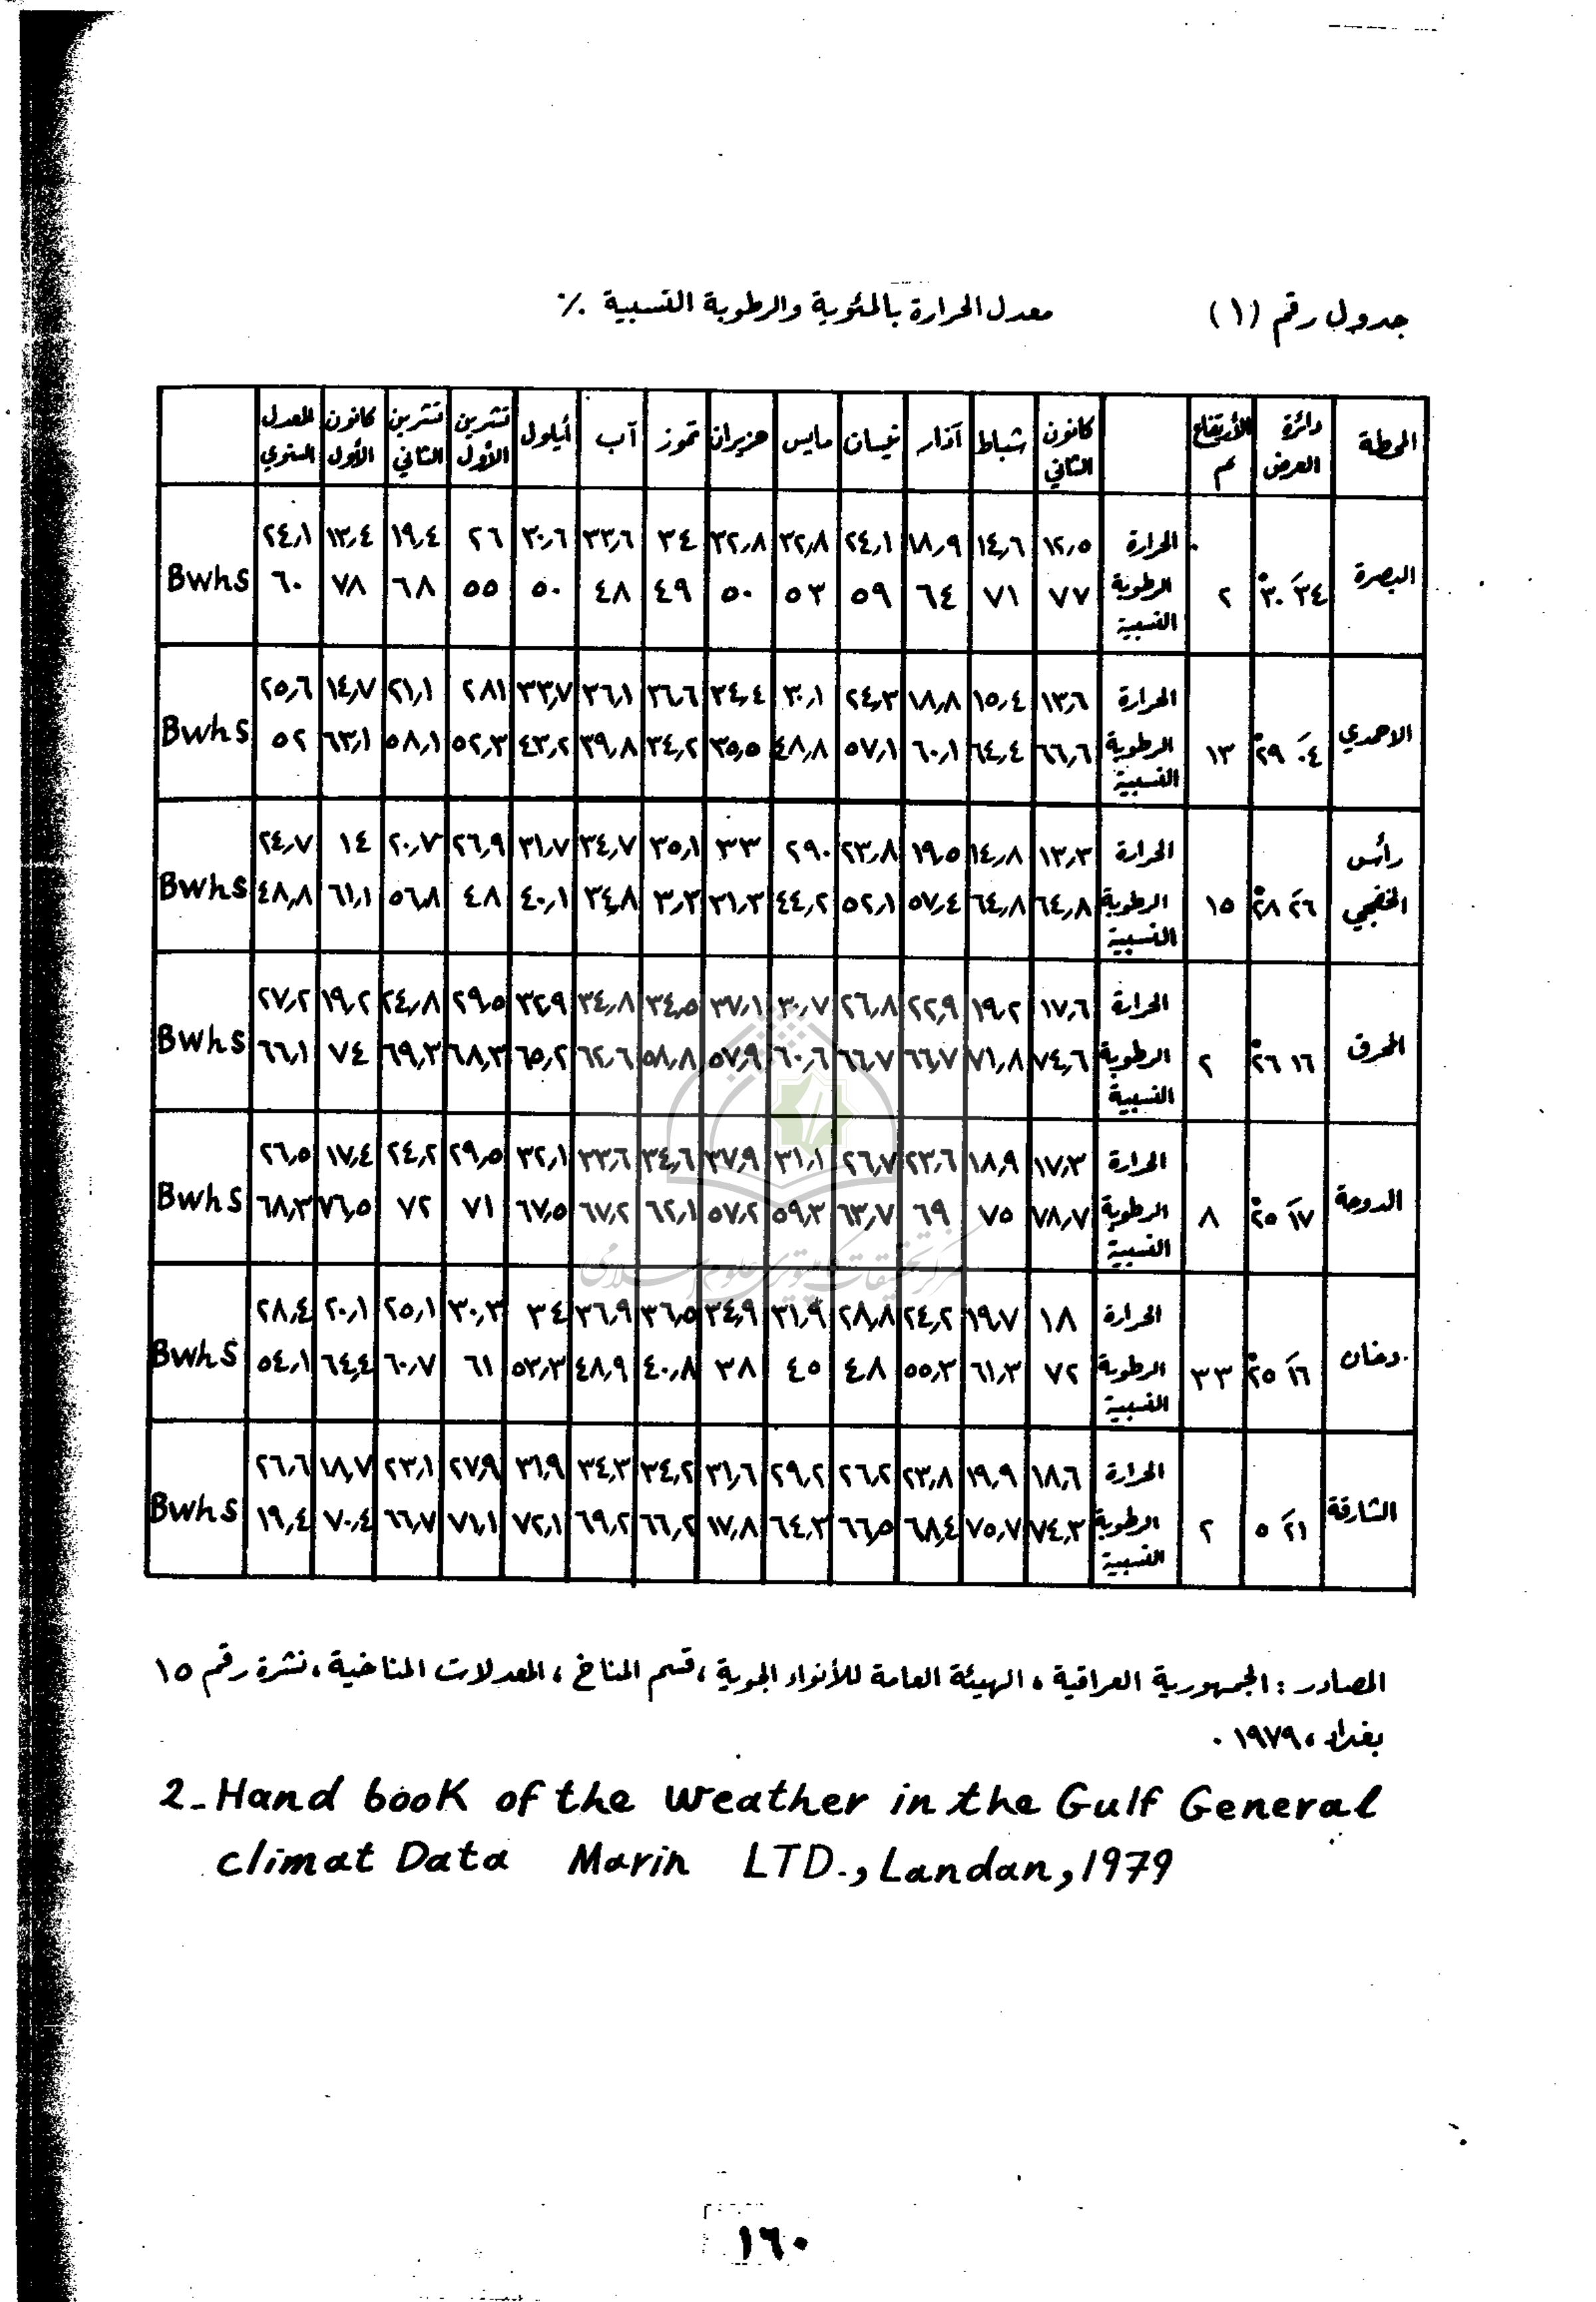 جدول رقم (١) معدل الحرارة بالمئوية والرطوبة النسبية ٪
المحطة دائرة العرض الأرتفاع م كانون الثاني شباط آذار نيسان مايس حزيران تموز آب أيلول تشرين الأول تشرين الثاني كانون الأول المعدل السنوي
البصرة ٣٤ ٣٠ ٢ الحرارة ١٢٫٥ ١٤٫٦ ١٨٫٩ ٢٤٫١ ٣٢٫٨ ٣٢٫٨ ٣٤ ٣٣٫٦ ٣٠٫٦ ٢٦ ١٩٫٤ ١٣٫٤ ٢٤٫١
الرطوبة النسبية ٧٧ ٧١ ٦٤ ٥٩ ٥٣ ٥٠ ٤٩ ٤٨ ٥٠ ٥٥ ٦٨ ٧٨ ٦٠ BwhS
الاحمدي ٠٤ ٢٩ ١٣ الحرارة ١٣٫٦ ١٥٫٤ ١٨٫٨ ٢٤٫٣ ٣٠٫١ ٣٤٫٤ ٣٦٫٦ ٣٦٫١ ٣٣٫٧ ٢٨١ ٢١٫١ ١٤٫٧ ٢٥٫٦
الرطوبة النسبية ٦٦٫٦ ٦٤٫٤ ٦٠٫١ ٥٧٫١ ٤٨٫٨ ٣٥٫٥ ٣٤٫٢ ٣٩٫٨ ٤٣٫٢ ٥٢٫٣ ٥٨٫١ ٦٣٫١ ٥٢ BwhS
رأس الخفجي ٢٦ ٢٨ ١٥ الحرارة ١٣٫٣ ١٤٫٨ ١٩٫٥ ٢٣٫٨ ٢٩٠ ٣٣ ٣٥٫١ ٣٤٫٧ ٣١٫٧ ٢٦٫٩ ٢٠٫٧ ١٤ ٢٤٫٧
الرطوبة النسبية ٦٤٫٨ ٦٤٫٨ ٥٧٫٤ ٥٢٫١ ٤٤٫٢ ٣١٫٣ ٣٫٣ ٣٤٫٨ ٤٠٫١ ٤٨ ٥٦٫٨ ٦١٫١ ٤٨٫٨ BwhS
المحرق ١٦ ٢٦ ٢ الحرارة ١٧٫٦ ١٩٫٢ ٢٢٫٩ ٢٦٫٨ ٣٠٫٧ ٣٧٫١ ٣٤٫٥ ٣٤٫٨ ٣٢٫٩ ٢٩٫٥ ٢٤٫٨ ١٩٫٢ ٢٧٫٢
الرطوبة النسبية ٧٤٫٦ ٧١٫٨ ٦٦٫٧ ٦٦٫٧ ٦٠٫٦ ٥٧٫٩ ٥٨٫٨ ٦٢٫٦ ٦٥٫٢ ٦٨٫٣ ٦٩٫٣ ٧٤ ٦٦٫١ BwhS
الدوحة ١٧ ٢٥ ٨ الحرارة ١٧٫٣ ١٨٫٩ ٢٣٫٦ ٢٦٫٧ ٣١٫١ ٣٧٫٩ ٣٤٫٦ ٣٣٫٦ ٣٢٫١ ٢٩٫٥ ٢٤٫٢ ١٧٫٤ ٢٦٫٥
الرطوبة النسبية ٧٨٫٧ ٧٥ ٦٩ ٦٣٫٧ ٥٩٫٣ ٥٧٫٢ ٦٢٫١ ٦٧٫٢ ٦٧٫٥ ٧١ ٧٢ ٧٦٫٥ ٦٨٫٣ BwhS
دخان ١٦ ٢٥ ٣٣ الحرارة ١٨ ١٩٫٧ ٢٤٫٢ ٢٨٫٨ ٣١٫٩ ٣٤٫٩ ٣٦٫٥ ٣٦٫٩ ٣٤ ٣٠٫٣ ٢٥٫١ ٢٠٫١ ٢٨٫٤
الرطوبة النسبية ٧٢ ٦١٫٣ ٥٥٫٣ ٤٨ ٤٥ ٣٨ ٤٠٫٨ ٤٨٫٩ ٥٣٫٣ ٦١ ٦٠٫٧ ٦٤٫٤ ٥٤٫١ BwhS
الشارقة ٢١ ٥ ٢ الحرارة ١٨٫٦ ١٩٫٩ ٢٣٫٨ ٢٦٫٢ ٢٩٫٢ ٣١٫٦ ٣٤٫٢ ٣٤٫٣ ٣١٫٩ ٢٧٫٩ ٢٣٫١ ١٨٫٧ ٢٦٫٦
الرطوبة النسبية ٧٤٫٣ ٧٥٫٧ ٦٨٫٤ ٦٦٫٥ ٦٤٫٣ ١٧٫٨ ٦٦٫٢ ٦٩٫٢ ٧٢٫١ ٧١٫١ ٦٦٫٧ ٧٠٫٤ ١٩٫٤ BwhS
المصادر : الجمهورية العراقية ، الهيئة العامة للأنواء الجوية ، قسم المناخ ، المعدلات المناخية ، نشرة رقم ١٥
بغداد ، ١٩٧٩ .
2_ Hand book of the weather in the Gulf General
climat Data Marin LTD., Landan, 1979
١٦٠
مركز تحقيقات كامپيوتري علوم اسلامي